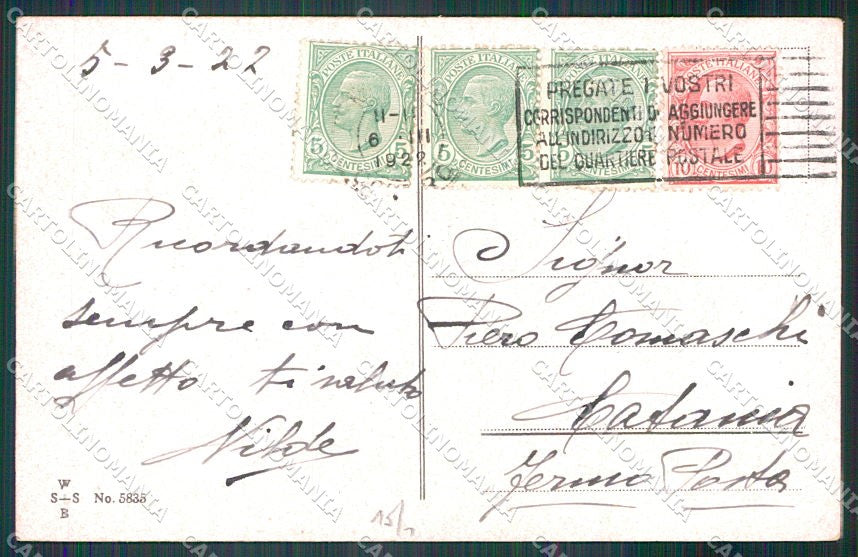 5-3-22
POSTE ITALIANE
5 CENTESIMI 5
POSTE ITALIANE
5 CENTESIMI
CENTESIMI
POSTE ITALIANE
10 CENTESIMI
11-
6 III
1922
PREGATE I VOSTRI
CORRISPONDENTI DI AGGIUNGERE
ALL'INDIRIZZO IL NUMERO
DEL QUARTIERE POSTALE
Ricordandoti
sempre con
affetto ti saluto
Nilde
Signor
Piero Comaschi
Catania
Fermo Posta
W
S-S No. 5835
B
15/-
CARTOLINOMANIA